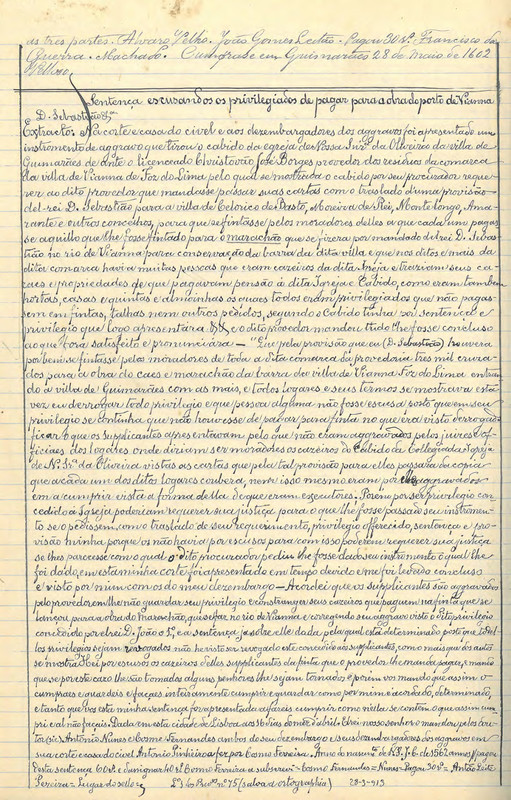 as tres partes. Alvaro Velho. João Gomes Leitão. Pagou 30 rs. Francisco da
Guerra. Machado. Cumpra-se em Guimarães 28 de Maio de 1602
Vellozo.
Sentença escusando os privilegiados de pagar para a obra do porto de Vianna
D. Sebastião &ª
Extractos Na corte e casa do civel e aos dezembargadores dos aggravos foi apresentado um
instromento de aggravo que tirou o cabido da egreja de Nossa Snrª da Oliveira da villa de
Guimarães de ante o licenceado Christovão José Borges provedor dos residuos da comarca
da villa de Vianna de Foz do Lima pelo qual se mostrava o cabido por seu procurador reque-
rer ao dito provedor que mandasse passar suas cartas com o traslado d'uma provisão
del-rei D. Sebastião para a villa de Celorico de Basto, Moreira de Rei, Monte longo, Ama-
rante e outros concelhos, para que se fintasse pelos moradores delles a que cada um pagas-
se aquillo que lhe fosse fintado para o marachão que se fizera por mandado del rei D. Sebas-
tião no rio de Vianna para conservação da barra da dita villa e que nos ditos e mais da
dita comarca havia muitas pessoas que eram cazeiros da dita Igreja e traziam seus ca-
zaes e propriedades de que pagavam pensão á dita Igreja e Cabido, como eram tambem
hortas, casas e quintas e almoinhas os quaes todos eram privilegiados que não pagas-
sem em fintas, talhas nem outros pedidos, segundo o Cabido tinha por sentença e
privilegio que logo apresentára && e o dito provedor mandou tudo lhe fosse concluso
ao que fora satisfeito e pronunciára — "Eu pela provisão que eu (D. Sebastião) houvera
por bem se fintasse pelos moradores de toda a dita comarca da provedoria tres mil cruza-
dos para a obra do caes e marachão da barra da villa de Vianna Foz do Lima entran-
do a villa de Guimarães com as mais, e todos logares e seus termos se mostrava esta
vez eu derrogar todo privilegio e que pessoa alguma não fosse escusa posto que em seu
privilegio se continha que não houvesse de pagar para finta no que era visto derrogado
ficar o que os supplicantes apresentavam pelo que não eram aggravados pelos juizes e of-
ficiaes dos logares onde diziam ser moradores os cazeiros do Cabido da Collegiada Igreja
de N. Srª da Oliveira vistas as cartas que pela tal provisão para elles passára da copia
que a cada um dos ditos logares coubera, nem isso mesmo eram por elle aggravados
em a cumprir vista a forma della de que eram executores. Porem por ser privilegio con-
cedido a Igreja poderiam requerer sua justiça para o que lhe fosse passado seu instromen-
to se o pedissem, com o traslado de seu requerimento, privilegio offerecido, sentença e pro-
visão minha porque os não havia por escusos para com isso poderem requerer sua justiça
se lhes parecesse com o qual o dito procurador pediu lhe fosse dado seu instromento o qual lhe
foi dado, em esta minha corte foi apresentado em tempo devido e me foi levado concluso
e visto por mim com os do meu dezembargo — Acordei que os supplicantes são aggravados
pelo provedor em lhe não guardar seu privilegio e constranger seus cazeiros que paguem na finta que se
lançou para a obra do marachão, que se faz no rio de Vianna e corregendo seu aggravo visto o dito privilegio
concedido por el rei D. João o 1º, e a sentença ja sobre elle dada pela qual está determinado posto que todol-
los privilegios sejam revogados não he visto ser revogado este concedido aos supplicantes, como mais que dos autos
se mostra Hei por escusos os cazeiros delles supplicantes da finta que o provedor lhe manda pagar, e mando
que se por este cazo lhe são tomados alguns penhores lhe sejam tornados e porem vos mando que assim o
cumpraes e guardeis e façaes inteiramente cumprir e guardar como por mim é acordado, determinado,
e tanto que vos esta minha sentença for apresentada a façaes cumprir como nella se contem o que assim um-
pri e al não façais. Dada em esta cidade de Lisboa aos 16 dias do mez d'Abril. El rei nosso senhor o mandou pelos dou-
tores (sic) Antonio Nunes e Cosme Fernandes ambos do seu dezembargo e seus dezembargadores dos aggravos em
sua corte e casa do civel. Antonio Pinheiro a fez por Cosme Ferreira. Anno do nascimtº. de N. S. J. C. de 1562 annos. Pagou
desta sentença 60 rs. e d'assignar 40 rs. Cosme Ferreira a subscrevi — Cosme Fernandes = Nunes = Pagou 30 rs = Antão Leite
Pereira — Lugar do sello = Lº dos Privos nº 75 (salva a orthographia) 28-3-913